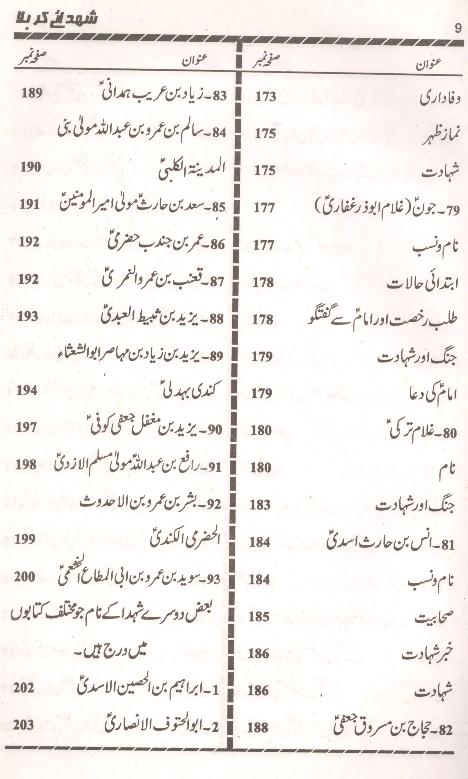 شھدائے کربلا
9
عنوان صفحہ نمبر
وفاداری 173
نماز ظہر 175
شہادت 175
79۔ جونؑ (غلام ابوذر غفاریؑ) 177
نام و نسب 177
ابتدائی حالات 178
طلب رخصت اور امامؑ سے گفتگو 178
جنگ اور شہادت 179
امامؑ کی دعا 179
80۔ غلام ترکیؑ 180
نام 180
جنگ اور شہادت 183
81۔ انس بن حارث اسدیؑ 184
نام و نسب 184
صحابیت 185
خبر شہادت 186
شہادت 186
82۔ حجاج بن مسروق جعفیؑ 188
عنوان صفحہ نمبر
83۔ زیاد بن عریب ہمدانیؑ 189
84۔ سالم بن عمرو بن عبداللہ مولیٰ بنی
المدینۃ الکلبیؑ 190
85۔ سعد بن حارثؑ مولیٰ امیر المومنینؑ 191
86۔ عمر بن جندب حضرمیؑ 192
87۔ قعنب بن عمرو النمریؑ 192
88۔ یزید بن ثبیط العبدیؑ 193
89۔ یزید بن زیاد بن مہاصر ابو الشعثاء
کندی بہدلیؑ 194
90۔ یزید بن مغفل جعفی کوفیؑ 197
91۔ رافع بن عبداللہؑ مولیٰ مسلم الازدیؑ 198
92۔ بشر بن عمرو بن الاحدوث
الحضرمی الکندیؑ 199
93۔ سوید بن عمرو بن ابی المطاع الخثعمیؑ 200
بعض دوسرے شہدا کے نام جو مختلف کتابوں
میں درج ہیں۔
1۔ ابراہیم بن الحصین الاسدیؑ 202
2۔ ابو الحتوف الانصاریؑ 203